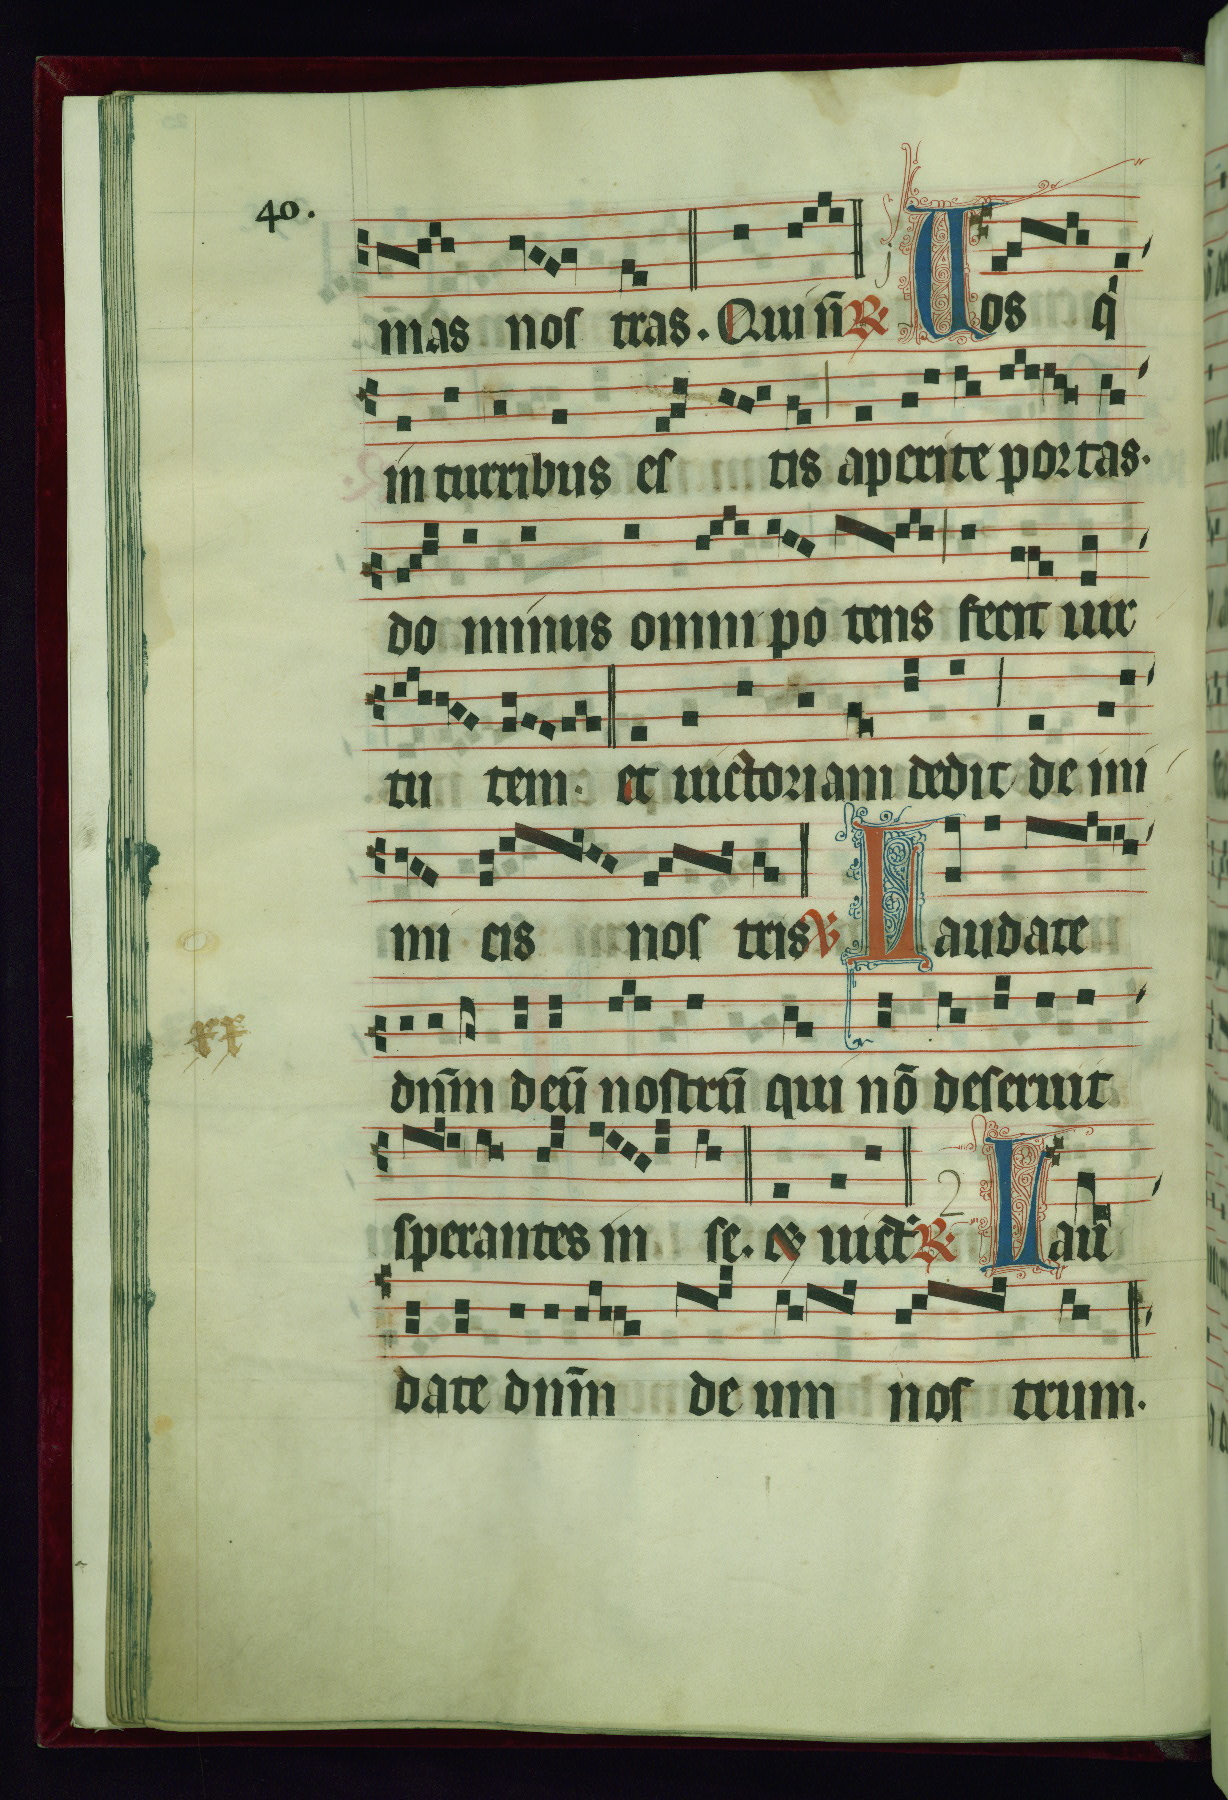 40.
mas nos tras. Qui n̄ R. Uos q
in turribus es tis aperite portas.
do minus omni po tens fecit uir
tu tem. et uictoriam dedit de ini
mi cis nos tris V Laudate
dn̄m deū nostrū qui nō deseruit
xx
sperantes in se. et uict R. 2 Lau
date dn̄m de um nos trum.